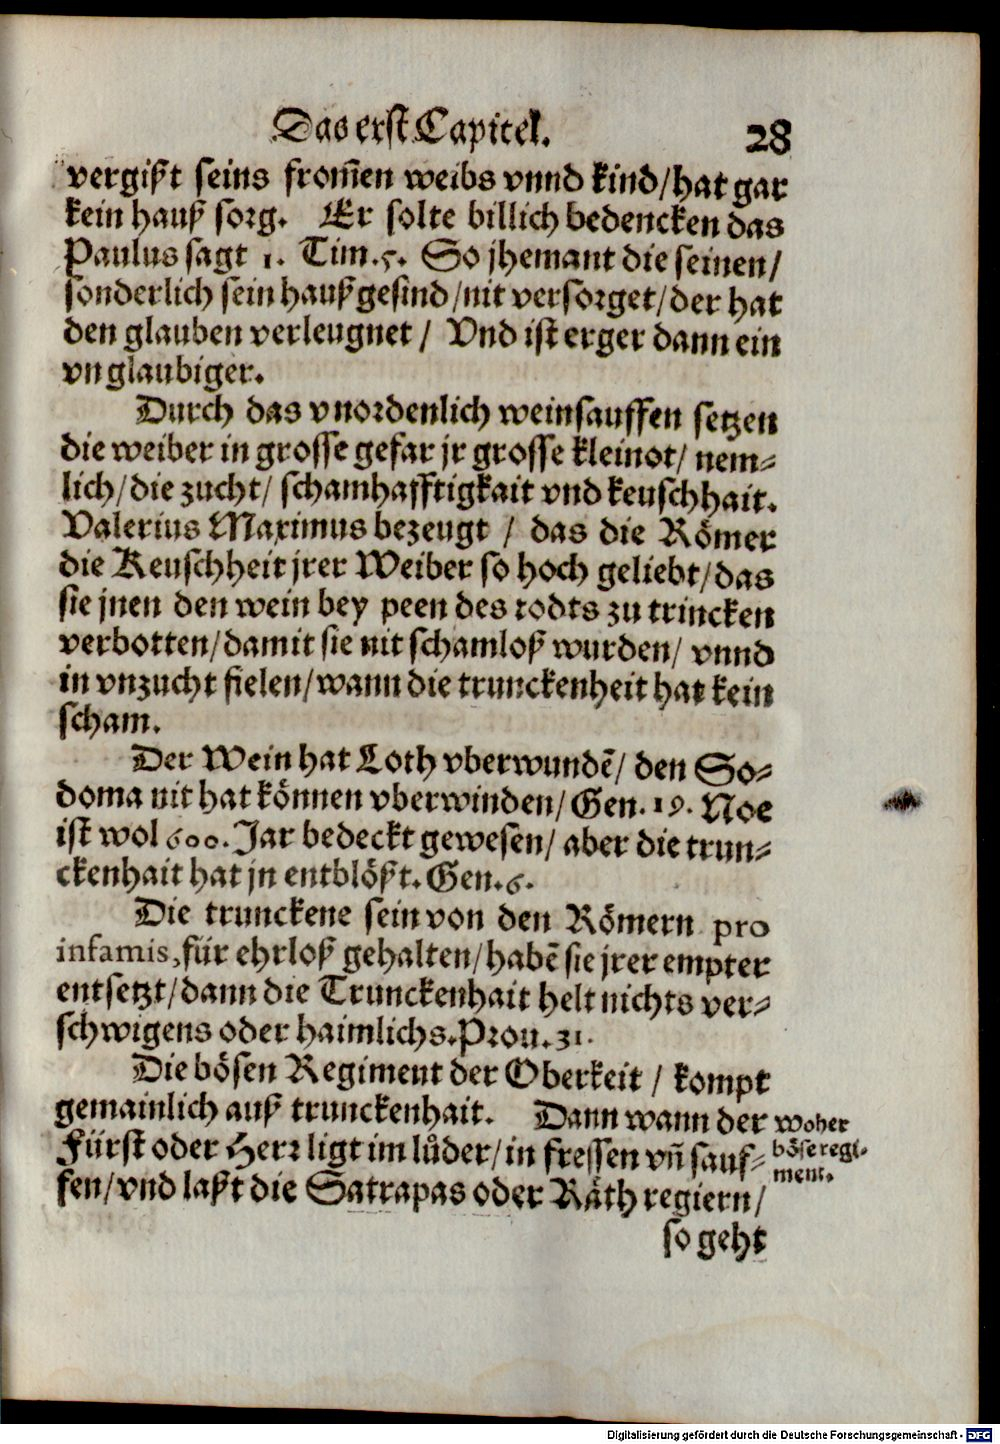 Das erst Capitel. 28
vergißt seins from̃en weibs vnnd kind/hat gar
kein hauß sorg. Er solte billich bedencken das
Paulus sagt 1. Tim.5. So jhemant die seinen/
sonderlich sein haußgesind/nit versorget/der hat
den glauben verleugnet/ Vnd ist erger dann ein
vnglaubiger.
Durch das vnordenlich weinsauffen setzen
die weiber in grosse gefar jr grosse kleinot/ nem-
lich/die zucht/ schamhafftigkait vnd keuschhait.
Valerius Maximus bezeugt / das die Römer
die Keuschheit jrer Weiber so hoch geliebt/das
sie jnen den wein bey peen des todts zu trincken
verbotten/damit sie nit schamloß wurden/ vnnd
in vnzucht fielen/wann die trunckenheit hat kein
scham.
Der Wein hat Loth vberwundẽ/ den So-
doma nit hat können vberwinden/Gen.19. Noe
ist wol 600. Jar bedeckt gewesen/ aber die trun-
ckenhait hat jn entblößt. Gen.6.
Die trunckene sein von den Römern pro
infamis, für ehrloß gehalten/habẽ sie jrer empter
entsetzt/dann die Trunckenhait helt nichts ver-
schwigens oder haimlichs. Prou.31.
Die bösen Regiment der Oberkeit / kompt
gemainlich auß trunckenhait. Dann wann der
Fürst oder Herr ligt im lůder/in fressen vñ sauf-
fen/vnd laßt die Satrapas oder Räth regiern/
Woher
böse regi-
ment.
so geht
Digitalisierung gefördert durch die Deutsche Forschungsgemeinschaft - DFG